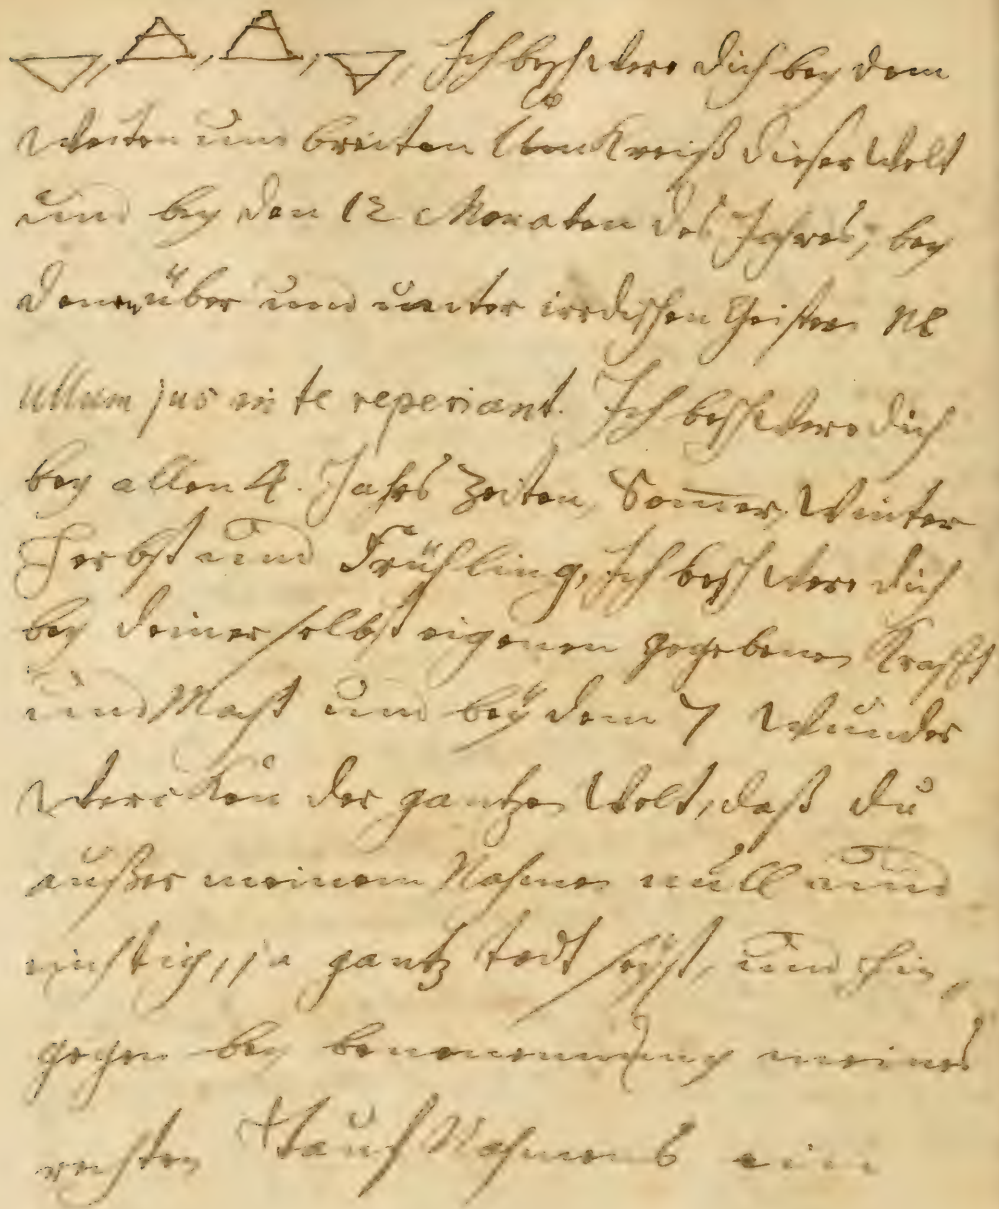 Ich beschwere dich bey dem
Weiten und breiten Umkreiß dieser Welt
und bey den 12 Monaten des Jahres, bey
denen über und unter irrdischen Geistern ne
ullum jus in te reperiant. Ich beschwere dich
bey allen 4. Jahrs Zeiten, Som̄er, Winter
Herbst und Frühling, Ich beschwere dich
bey deiner selbst eigenen gegebenen Krafft
und Macht und beÿ dem 7 Wunder
Wercken der gantzen Welt, daß du
außer meinem Nahmen null und
nichtig, ja gantz todt seyst, und hin,
gegen bey benennung meines
rechten Tauf Nahmens ein